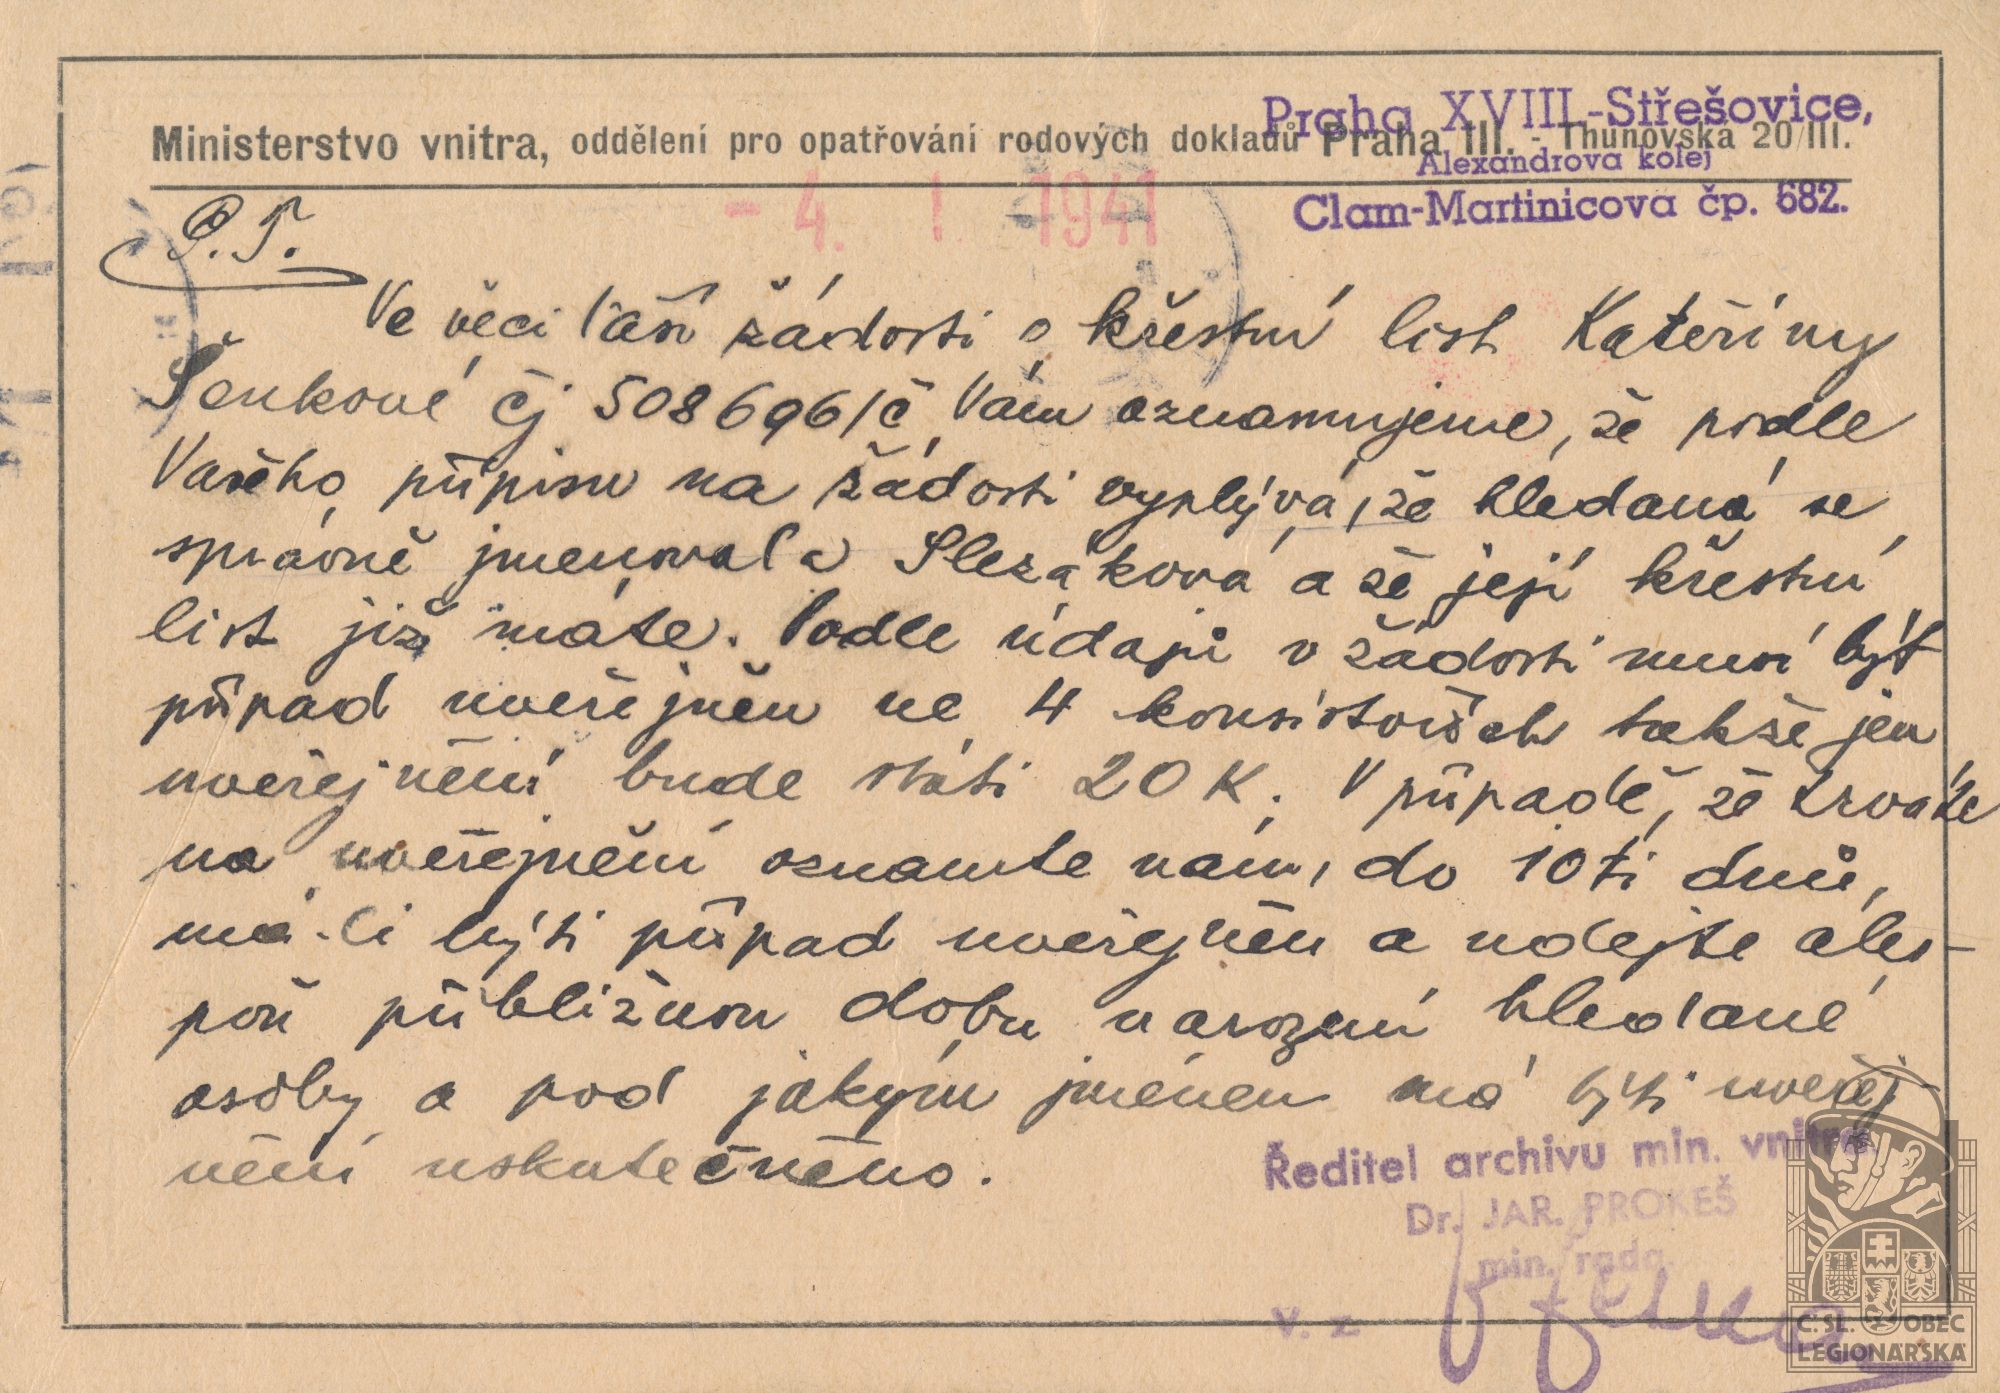 Praha XVIII.-Střešovice,
Ministerstvo vnitra, oddělení pro opatřování rodových dokladů Praha III. - Thunovská 20/III.
Alexandrova kolej
Clam-Martinicova čp. 682.
- 4. I. 1941
P. T.
Ve věci Vaší žádosti o křestní list Kateřiny
Šenkové čj 508696/č Vám oznamujeme, že podle
Vašeho přípisu na žádosti vyplývá, že hledaná se
správně jmenovala Slezáková a že její křestní
list již máte. Podle údajů v žádosti musí být
případ uveřejněn ve 4 konsistořích takže jen
uveřejnění bude státi 20 K. V případě, že trváte
na uveřejnění oznamte nám, do 10ti dnů,
má-li býti případ uveřejněn a udejte ales-
poň přibližnou dobu narození hledané
osoby a pod jakým jménem má býti uveřej
nění uskutečněno.
Ředitel archivu min. vnitra
Dr. JAR. PROKEŠ
min. rada.
v. z
Č. SL. OBEC
LEGIONÁŘSKÁ